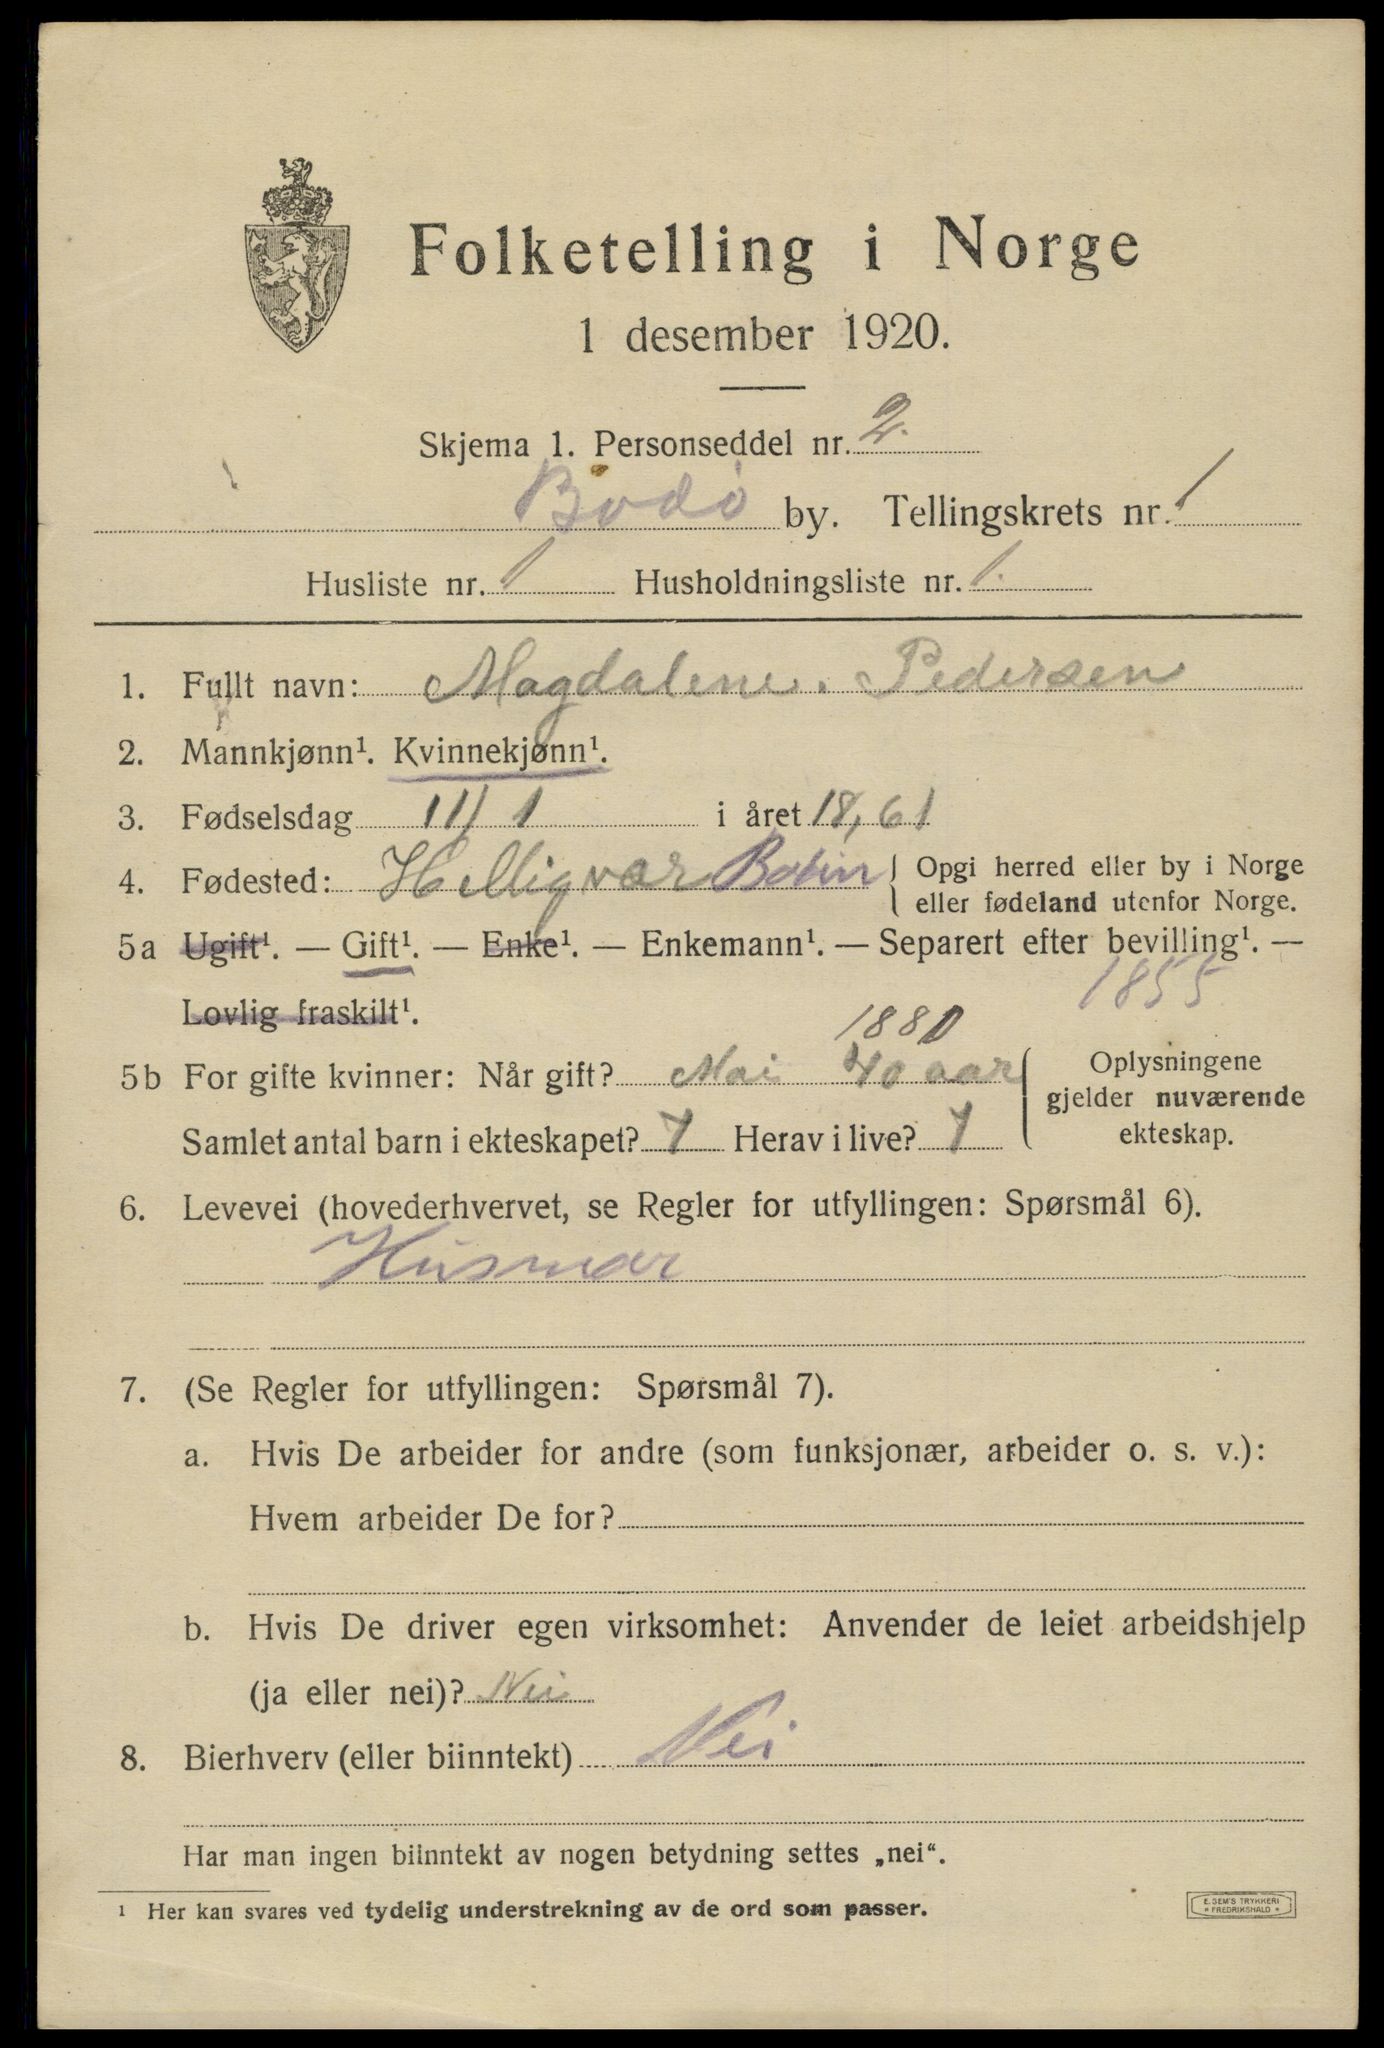 Folketelling i Norge
1 desember 1920.
Skjema 1. Personseddel nr. 2.
Bodø by. Tellingskrets nr. 1
Husliste nr. 1 Husholdningsliste nr. 1.
1. Fullt navn: Magdalene. Pedersen
2. Mannkjønn¹. Kvinnekjønn¹.
3. Fødselsdag 11/1 i året 18,61
4. Fødested: Helligvær Bodin { Opgi herred eller by i Norge
eller fødeland utenfor Norge.
5a Ugift¹. — Gift¹. — Enke¹. — Enkemann¹. — Separert efter bevilling¹. —
1855
Lovlig fraskilt¹.
1880
5b For gifte kvinner: Når gift? Mai 40 aar { Oplysningene
gjelder nuværende
ekteskap.
Samlet antal barn i ekteskapet? 7 Herav i live? 7
6. Levevei (hovederhvervet, se Regler for utfyllingen: Spørsmål 6).
Husmor
7. (Se Regler for utfyllingen: Spørsmål 7).
a. Hvis De arbeider for andre (som funksjonær, arbeider o. s. v.):
Hvem arbeider De for?
b. Hvis De driver egen virksomhet: Anvender de leiet arbeidshjelp
(ja eller nei)? Nei
8. Bierhverv (eller biinntekt) Nei
Har man ingen biinntekt av nogen betydning settes „nei“.
¹ Her kan svares ved tydelig understrekning av de ord som passer.
E. SEM'S TRYKKERI
* FREDRIKSHALD *